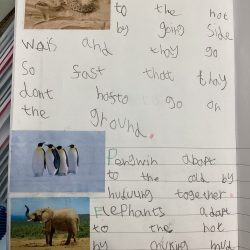 to the hot
by going side
ways and thay go
So fast that thay
dont hafto go on
the ground.
Pengwin adapt
to the cold by
huduung together.
Elephants adapt
to the hot
by